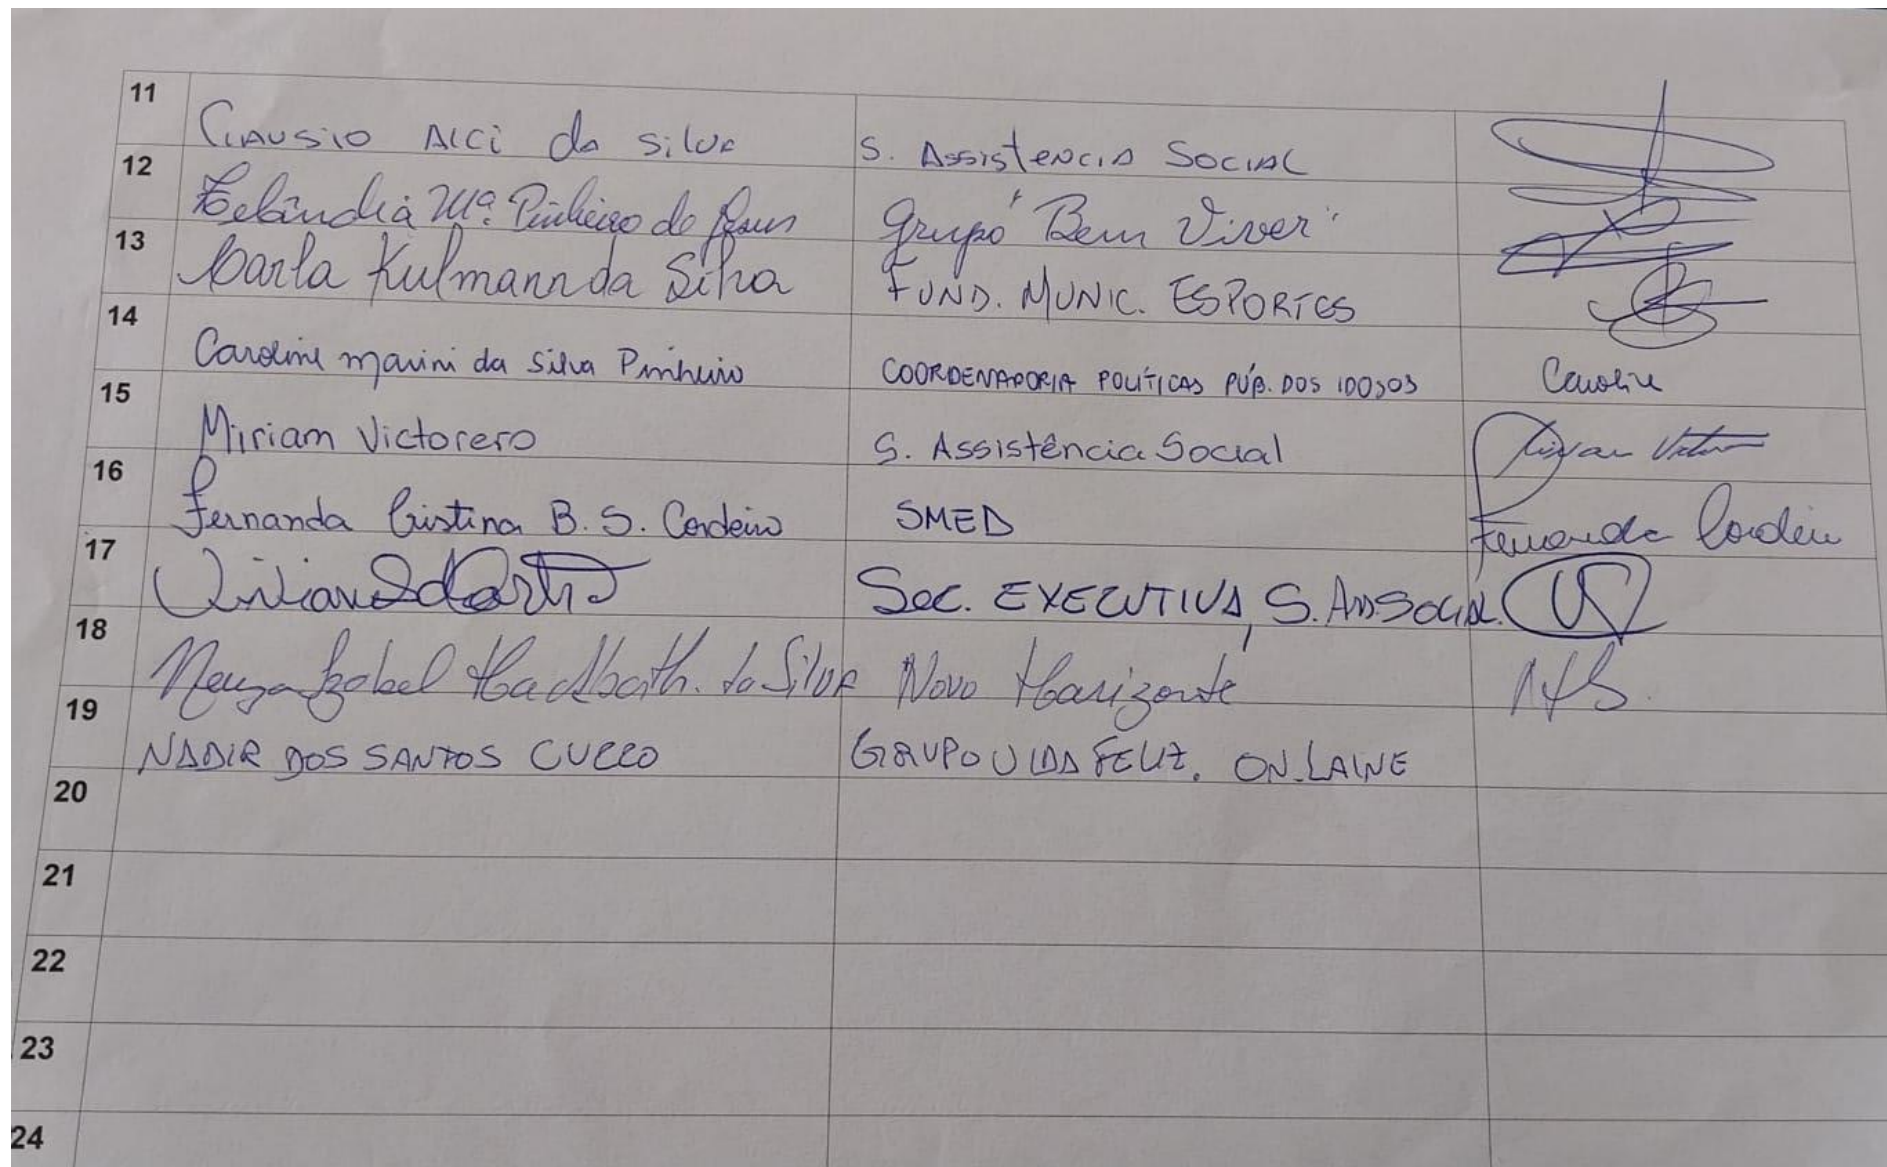 11 Clausio Alci da Silva S. Assistencia Social
12 Zelândia Mª. Pinheiro de Jesus Grupo "Bem Viver"
13 Carla Kulmann da Silva FUND. MUNIC. ESPORTES
14 Caroline Marini da Silva Pinheiro COORDENADORIA POLÍTICAS PÚB. DOS IDOSOS Caroline
15 Miriam Victorero S. Assistência Social
16 Fernanda Cristina B. S. Cordeiro SMED Fernanda Cordeiro
17 Sec. EXECUTIVA, S. Ass. Social
18 Izabel da Silva Novo Horizonte
19 NADIR DOS SANTOS GRUPO VIDA FELIZ. ON-LAINE
20
21
22
23
24